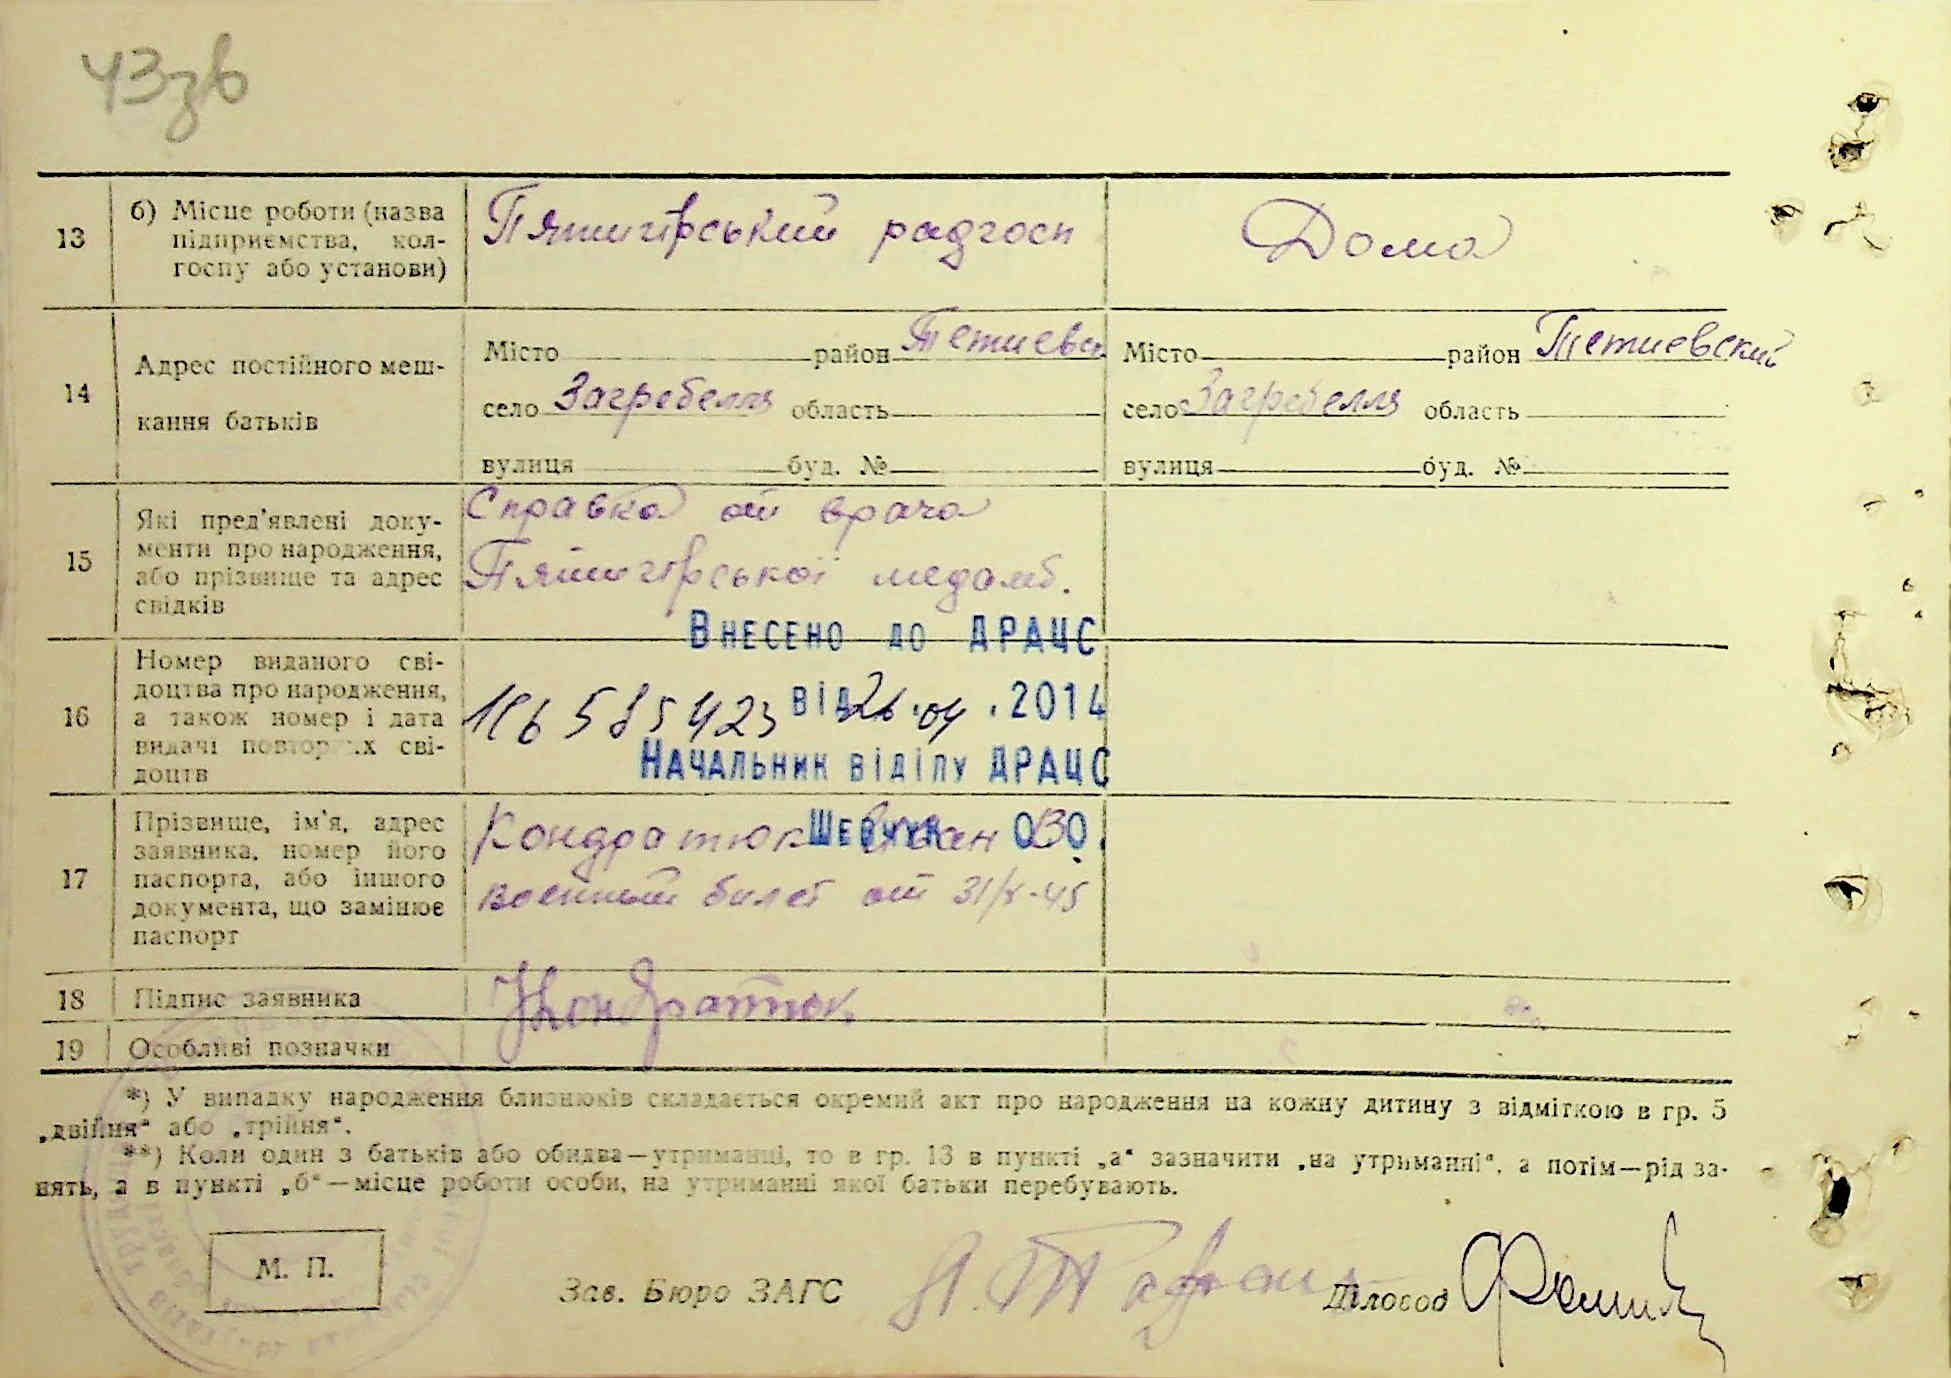 43зв
13
б) Місце роботи (назва
підприємства, кол-
госпу або установи)
Пятигірський радгосп
Дома
14
Адрес постійного меш-
кання батьків
Місто район Тетиевск
село Загребелля область
вулиця буд. №
Місто район Тетиевский
село Загребелля область
вулиця буд. №
15
Які пред'явлені доку-
менти про народження,
або прізвище та адрес
свідків
Справка от врача
Пятигірської медамб.
Внесено до ДРАЦС
16
Номер виданого сві-
доцтва про народження,
а також номер і дата
видачі повторних сві-
доцтв
585423
від 26.04.2014
Начальник відділу ДРАЦС
17
Прізвище, ім'я, адрес
заявника, номер його
паспорта, або іншого
документа, що замінює
паспорт
Кондратюк Іван В.
Шевчук О.О.
военный билет от 31/X-45
18
Підпис заявника
Кондратюк
19
Особливі позначки
*) У випадку народження близнюків складається окремий акт про народження на кожну дитину з відміткою в гр. 5
„двійня" або „трійня".
**) Коли один з батьків або обидва—утриманці, то в гр. 13 в пункті „а" зазначити „на утриманні", а потім—рід за-
нять, а в пункті „б"—місце роботи особи, на утриманні якої батьки перебувають.
М. П.
Зав. Бюро ЗАГС
Діловод